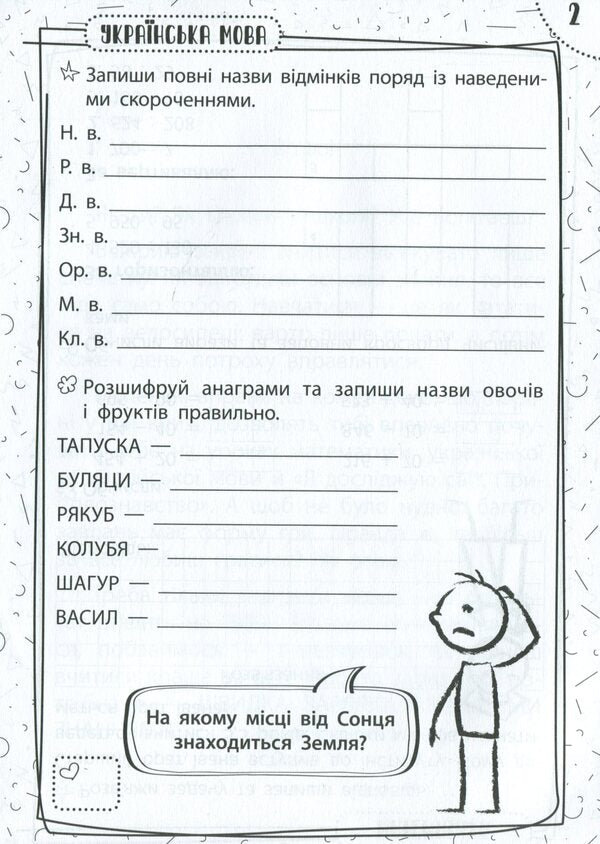 2
УКРАЇНСЬКА МОВА
Запиши повні назви відмінків поряд із наведени-
ми скороченнями.
Н. в.
Р. в.
Д. в.
Зн. в.
Ор. в.
М. в.
Кл. в.
Розшифруй анаграми та запиши назви овочів
і фруктів правильно.
ТАПУСКА —
БУЛЯЦИ —
РЯКУБ —
КОЛУБЯ —
ШАГУР —
ВАСИЛ —
На якому місці від Сонця
знаходиться Земля?